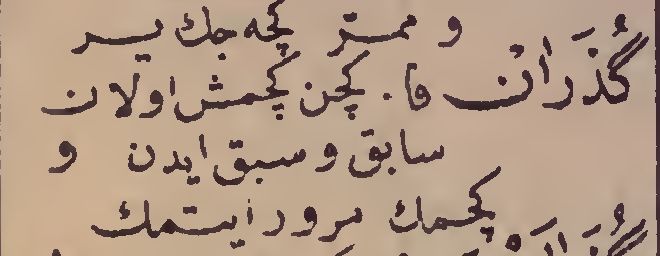 و ممرّ كچه جك ير
گُذَرانْ فا. كچن كچمش اولان
سابق و سبق ايدن و
كچمك مرور ايتمك